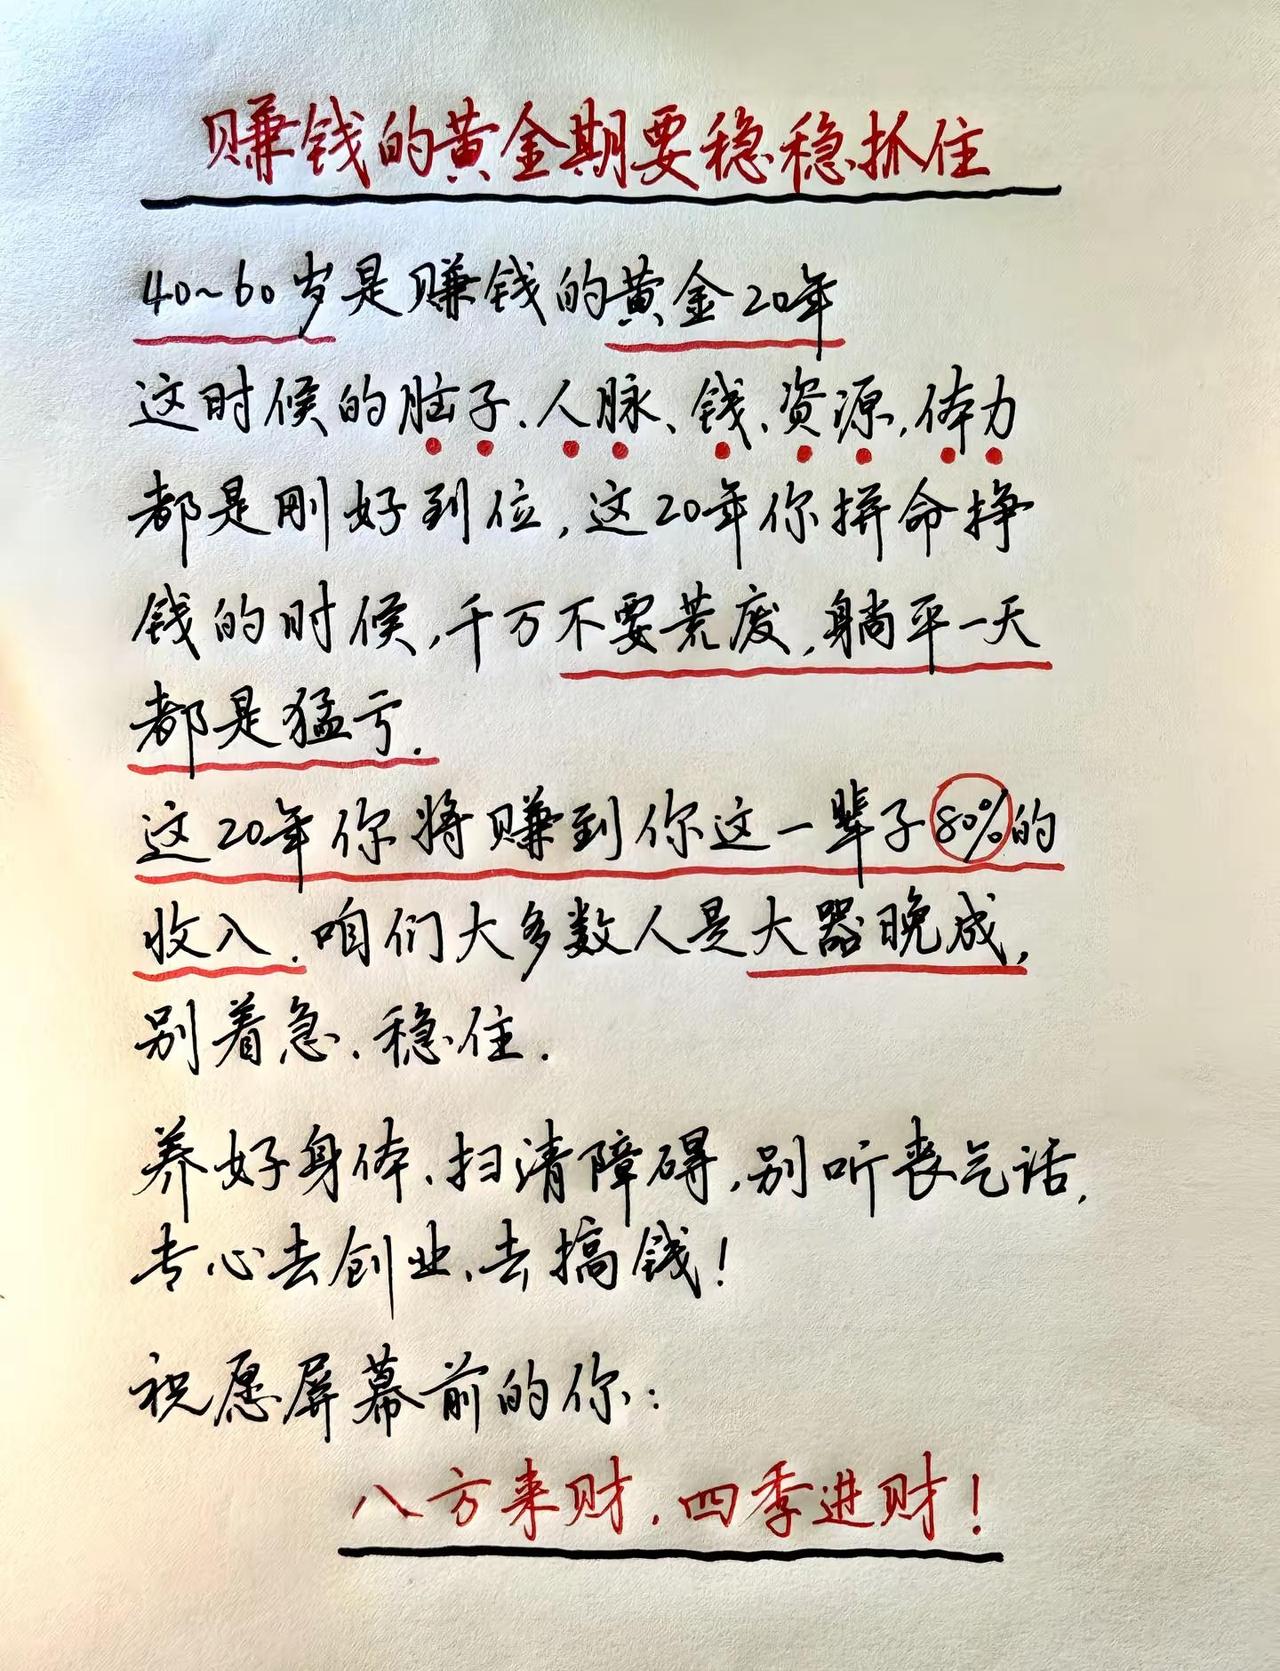 赚钱的黄金期要稳稳抓住
40~60岁是赚钱的黄金20年
这时候的脑子、人脉、钱、资源,体力
都是刚好到位,这20年你拼命挣
钱的时候,千万不要荒废,躺平一天
都是猛亏.
这20年你将赚到你这一辈子80%的
收入.咱们大多数人是大器晚成,
别着急、稳住.
养好身体、扫清障碍,别听丧气话,
专心去创业、去搞钱!
祝愿屏幕前的你:
八方来财,四季进财!